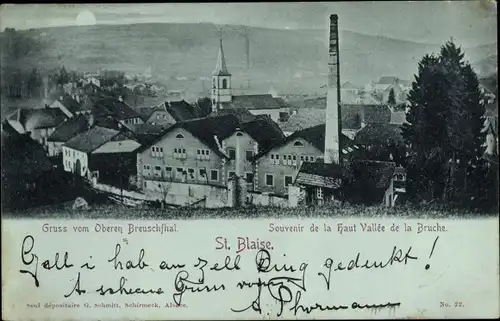 Gruss vom Oberen Breuschthal.
Souvenir de la Haut Vallée de la Bruche.
St. Blaise.
Gall i hab an zell Ding gedenkt!
A scheene Gruss von
A.
Seul dépositaire G. Schmitt, Schirmeck, Alsace.
No. 22.